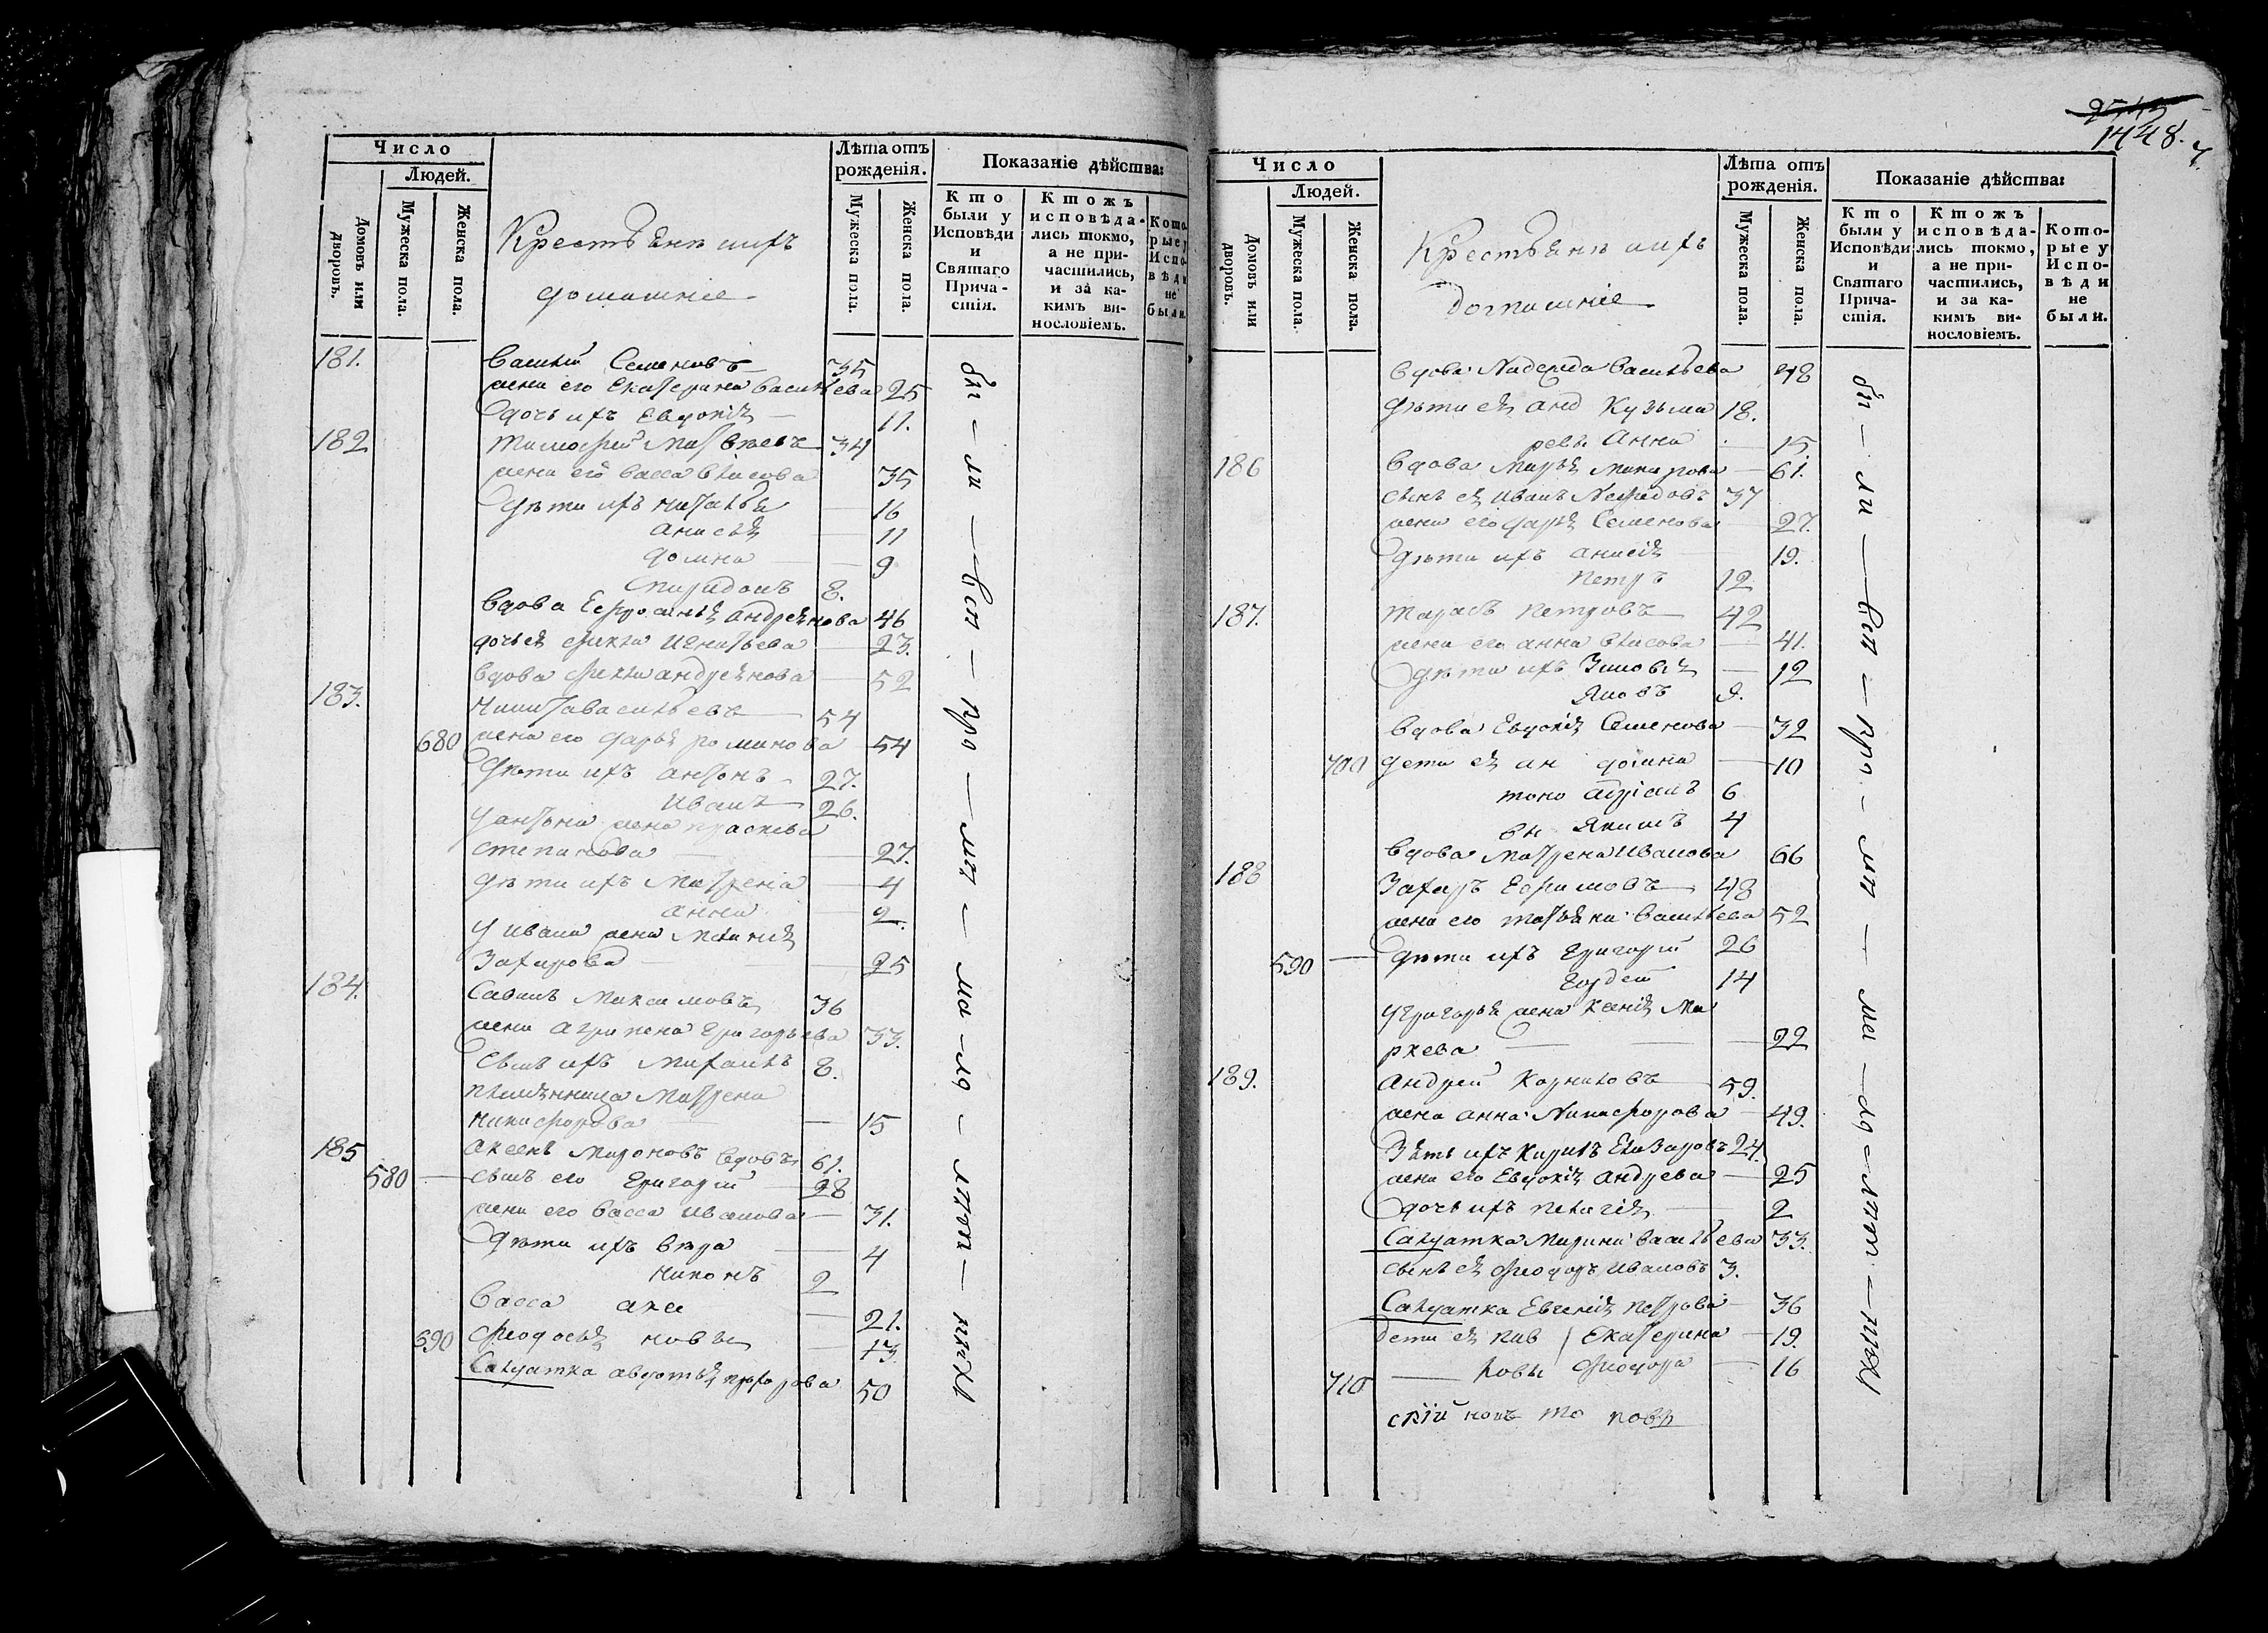 Число
Людей.
Домовъ или дворовъ.
Мужеска пола.
Женска пола.
Крестьяне и ихъ
домашніе
Лѣта отъ рожденія.
Мужеска пола.
Женска пола.
Показаніе дѣйства:
Кто были у Исповѣди и Святаго Причастія.
Ктожъ исповѣдались токмо, а не причастились, и за какимъ винословіемъ.
Которые у Исповѣди не были.
181. Василій Семеновъ 35
жена его Екатерина Васильева 25
дочь ихъ Евдокія 11.
182 Тимофей Матвѣевъ 34
жена его Васса Власова 35
дѣти ихъ Наталья 16
Анисья 11
Домна 9
Спиридонъ 8.
вдова Ефросинья Андреянова 46
дочь ея Фекла Игнатьева 23.
вдова Фекла Андреянова 52
183. Никита Васильевъ 54
680 жена его Дарья Романова 54
дѣти ихъ Антонъ 27.
Иванъ 26.
у Антона жена Прасковья
Степанова 27.
дѣти ихъ Матрена 4
Анна 2.
у Ивана жена Меланія
Захарова 25
184. Савинъ Максимовъ 36
жена Агрипена Григорьева 33.
сынъ ихъ Михаилъ 8.
племянница Матрена
Никифорова 15
185 Аксенъ Мироновъ вдовъ 61.
580 сынъ его Григорій 28
жена его Васса Иванова 31.
дѣти ихъ Вѣра 4
Никонъ 2
Васса Аксе 21.
690 Феодосья новы 13.
Салдатка Авдотья Прохорова 50
бы – ли – всѣ – про – мѣ – ма – лѣт – нихъ
1448.
Число
Людей.
Домовъ или дворовъ.
Мужеска пола.
Женска пола.
Крестьяне и ихъ
домашніе
Лѣта отъ рожденія.
Мужеска пола.
Женска пола.
Показаніе дѣйства:
Кто были у Исповѣди и Святаго Причастія.
Ктожъ исповѣдались токмо, а не причастились, и за какимъ винословіемъ.
Которые у Исповѣди не были.
вдова Надежда Васильева 48
дѣти ея Анд Кузьма 18.
реевы Анна 15.
186 вдова Марья 61.
сынъ ея Иванъ Нефедовъ 37
жена его Дарья Семенова 27.
дѣти ихъ Анисія 19.
Петръ 12
187. Тарасъ Петровъ 42
жена его Анна Власова 41.
дѣти ихъ Зиновія 12
Яковъ 9.
вдова Евдокія Семенова 32
700 дети ея Ан Домна 10
тоно Адріанъ 6
вы Якимъ 4
вдова Матрена Иванова 66
188 Захаръ Ефимовъ 48
жена его Татьяна Васильева 52
590 дѣти ихъ Григорій 26
Гордей 14
у Григорья жена Ксенія Ма
ркева 22
189. Андрей Корниловъ 59.
жена Анна Никифорова 49.
Зять ихъ Кирилъ Елизаровъ 24.
жена его Евдокія Андреева 25
дочь ихъ Пелагія 2
Салдатка Марина Васильева 33.
сынъ ея Феодоръ Ивановъ 3.
Салдатка Евгенія Петрова 36
дети ея Пав Екатерина 19.
710 ловы Феодора 16
бы – ли – всѣ – про – мѣ – ма – лѣт – нихъ